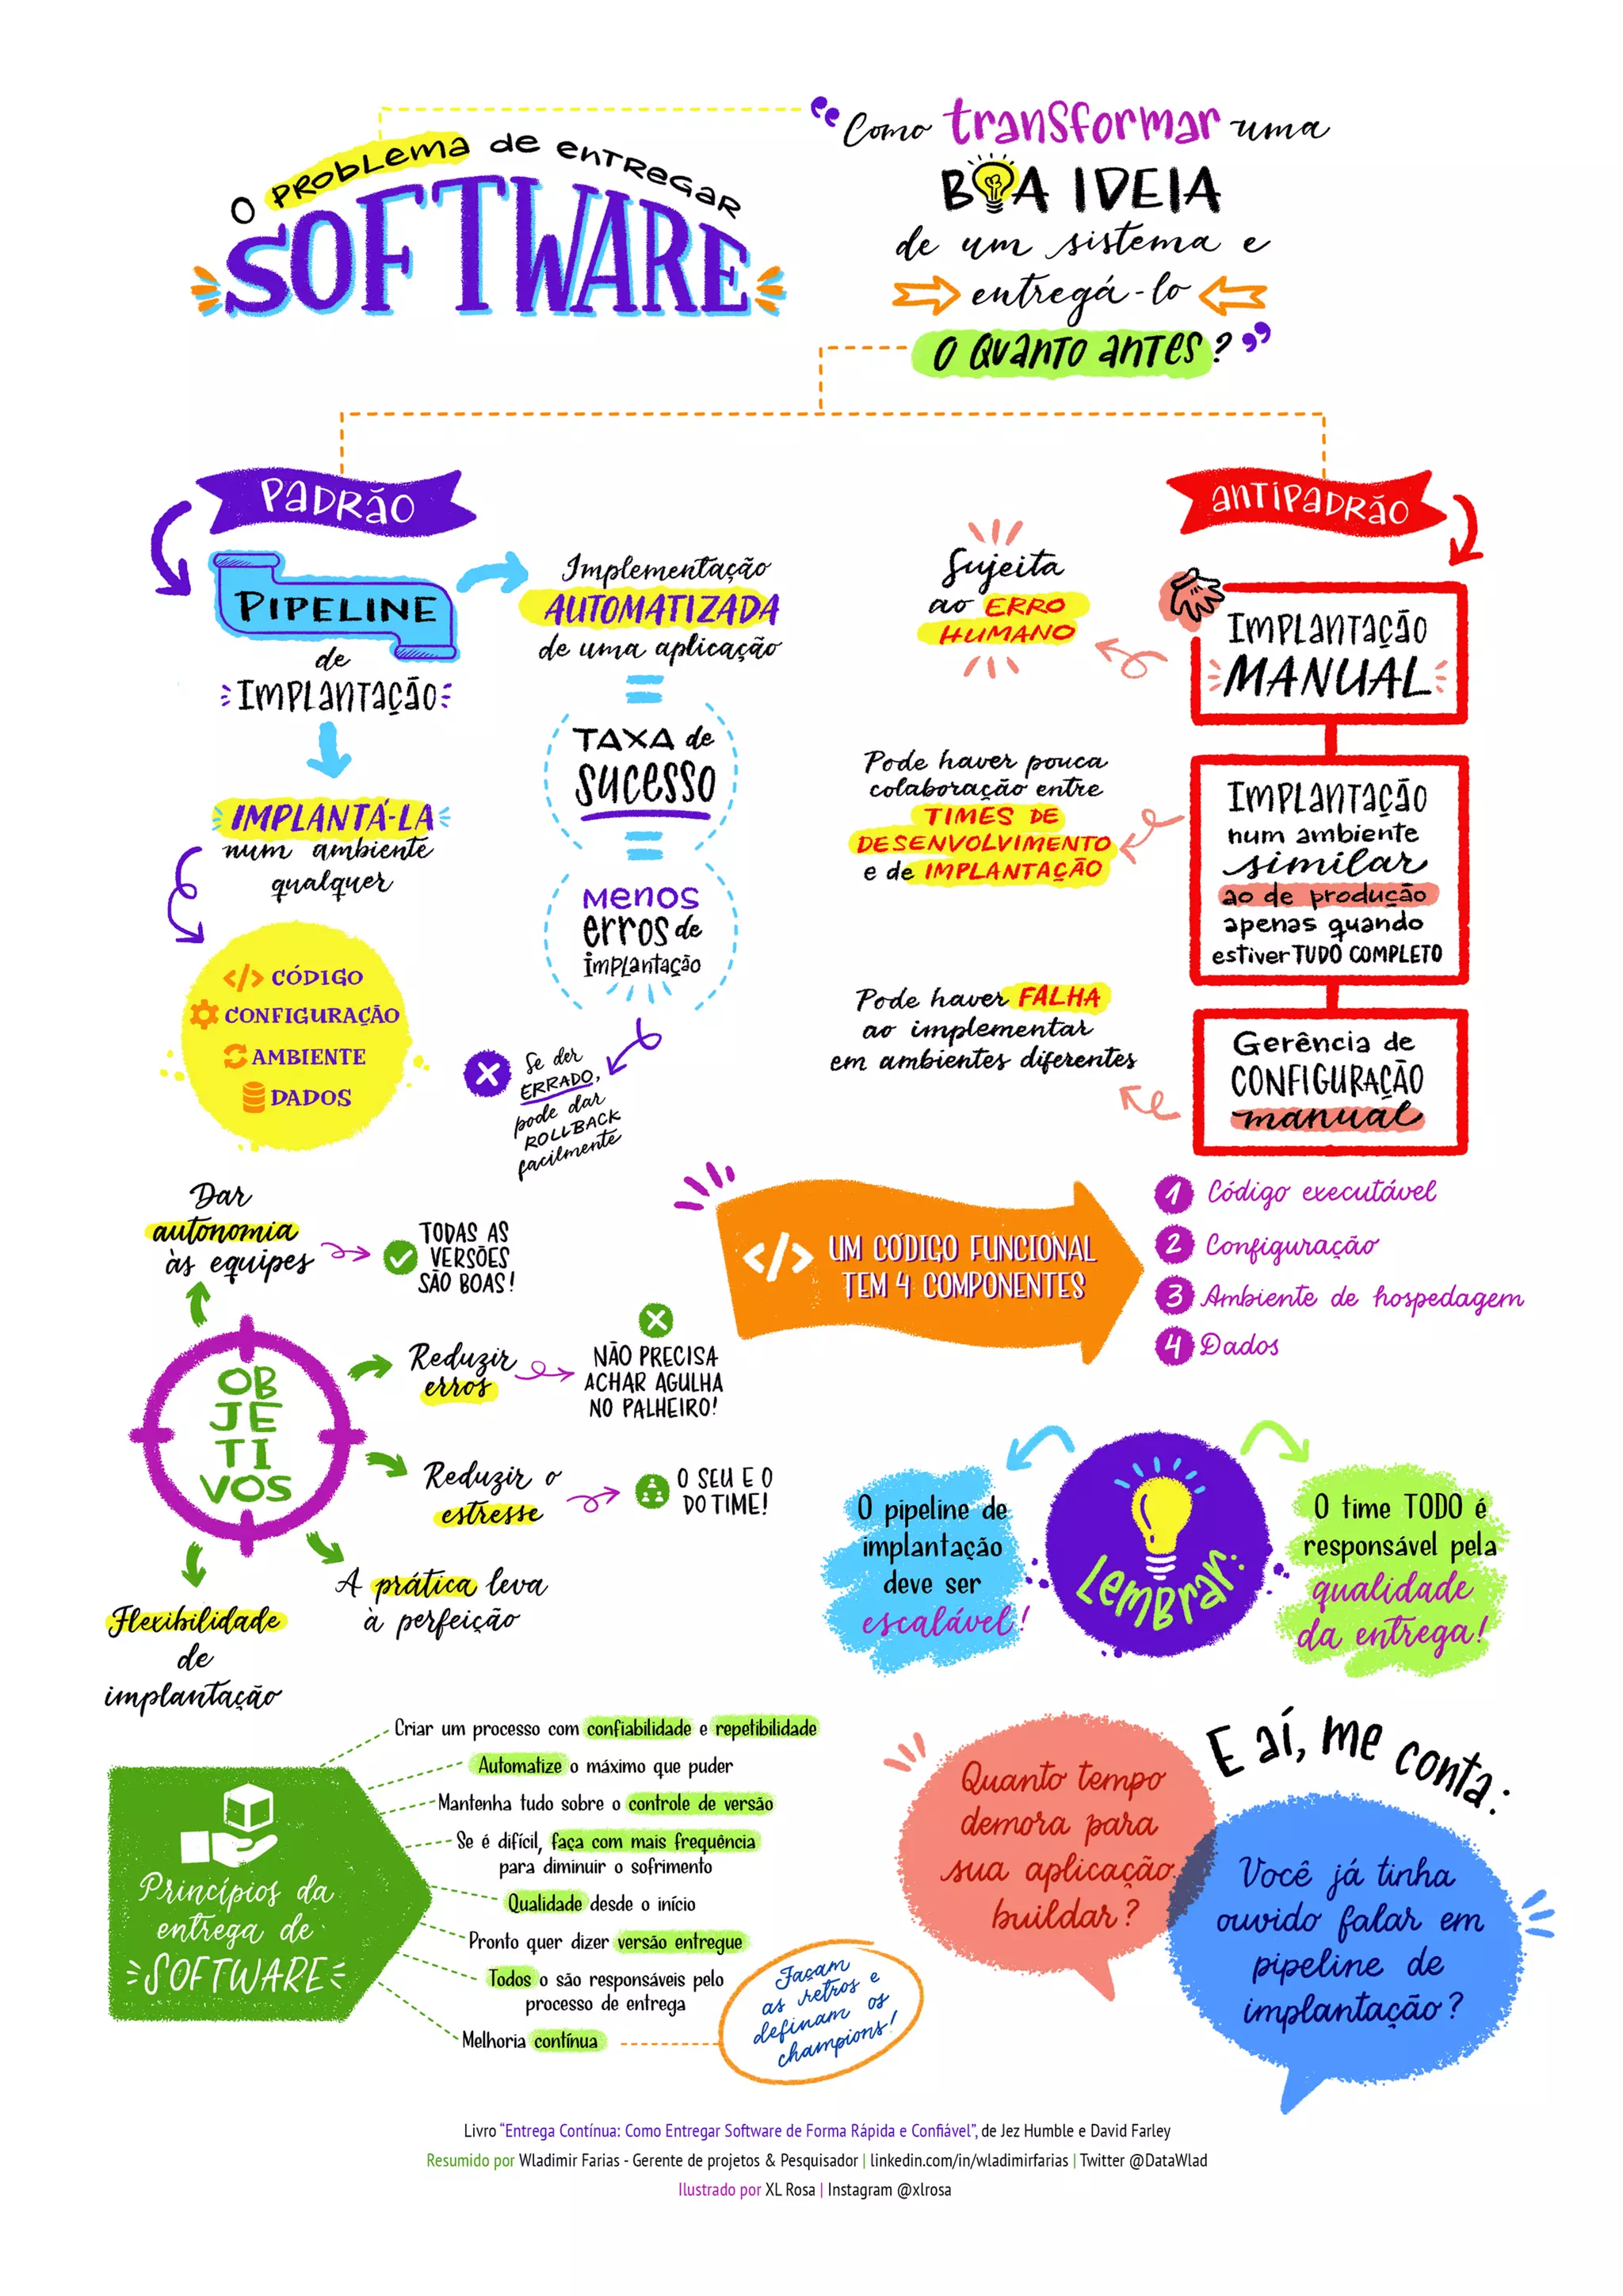 O PROBLEMA de ENTREGAR
SOFTWARE
“Como transformar uma
BOA IDEIA
de um sistema e
entregá-lo
O QUANTO ANTES?”
PADRÃO
PIPELINE
de
IMPLANTAÇÃO
IMPLANTÁ-LA
num ambiente
qualquer
</> CÓDIGO
CONFIGURAÇÃO
AMBIENTE
DADOS
Implementação
AUTOMATIZADA
de uma aplicação
=
TAXA de
SUCESSO
=
MENOS
erros de
implantação
Se der
ERRADO,
pode dar
ROLLBACK
facilmente
ANTIPADRÃO
IMPLANTAÇÃO
MANUAL
Sujeita
ao ERRO
HUMANO
IMPLANTAÇÃO
num ambiente
similar
ao de produção
apenas quando
estiver TUDO COMPLETO
Pode haver pouca
colaboração entre
TIMES DE
DESENVOLVIMENTO
e de IMPLANTAÇÃO
Gerência de
CONFIGURAÇÃO
manual
Pode haver FALHA
ao implementar
em ambientes diferentes
</> UM CÓDIGO FUNCIONAL
TEM 4 COMPONENTES
1 Código executável
2 Configuração
3 Ambiente de hospedagem
4 Dados
OB
JE
TI
VOS
Dar
autonomia
às equipes
TODAS AS
VERSÕES
SÃO BOAS!
Reduzir
erros
NÃO PRECISA
ACHAR AGULHA
NO PALHEIRO!
Reduzir o
estresse
O SEU E O
DO TIME!
A prática leva
à perfeição
Flexibilidade
de
implantação
LEMBRAR:
O pipeline de
implantação
deve ser
escalável!
O time TODO é
responsável pela
qualidade
da entrega!
Princípios da
entrega de
SOFTWARE
Criar um processo com confiabilidade e repetibilidade
Automatize o máximo que puder
Mantenha tudo sobre o controle de versão
Se é difícil, faça com mais frequência
para diminuir o sofrimento
Qualidade desde o início
Pronto quer dizer versão entregue
Todos o são responsáveis pelo
processo de entrega
Melhoria contínua
Façam
as retros e
definam os
champions!
E aí, me conta:
Quanto tempo
demora para
sua aplicação
buildar?
Você já tinha
ouvido falar em
pipeline de
implantação?
Livro “Entrega Contínua: Como Entregar Software de Forma Rápida e Confiável”, de Jez Humble e David Farley
Resumido por Wladimir Farias - Gerente de projetos & Pesquisador | linkedin.com/in/wladimirfarias | Twitter @DataWlad
Ilustrado por XL Rosa | Instagram @xlrosa